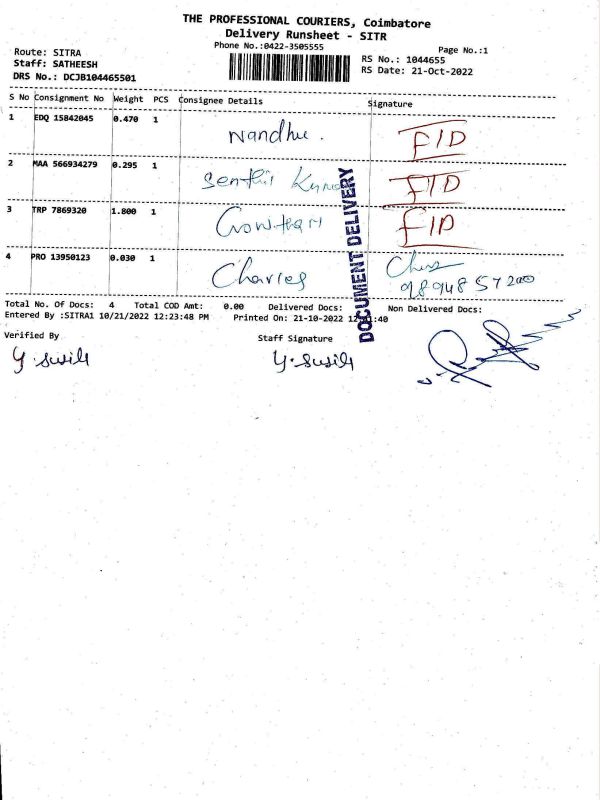 THE PROFESSIONAL COURIERS, Coimbatore
Delivery Runsheet - SITR
Phone No.:0422-3505555
Page No.:1
Route: SITRA
Staff: SATHEESH
DRS No.: DCJB104465501
RS No.: 1044655
RS Date: 21-Oct-2022
S No Consignment No Weight PCS Consignee Details Signature
1 EDQ 15842045 0.470 1 Nandhu. FID
2 MAA 566934279 0.295 1 Senthil Kumar FID
3 TRP 7869320 1.800 1 Gowtham FID
4 PRO 13950123 0.030 1 Charles
9894857200
DOCUMENT DELIVERY
Total No. Of Docs: 4 Total COD Amt: 0.00 Delivered Docs: Non Delivered Docs:
Entered By :SITRA1 10/21/2022 12:23:48 PM Printed On: 21-10-2022 12:31:40
Verified By Staff Signature
Y. Susila Y. Susila